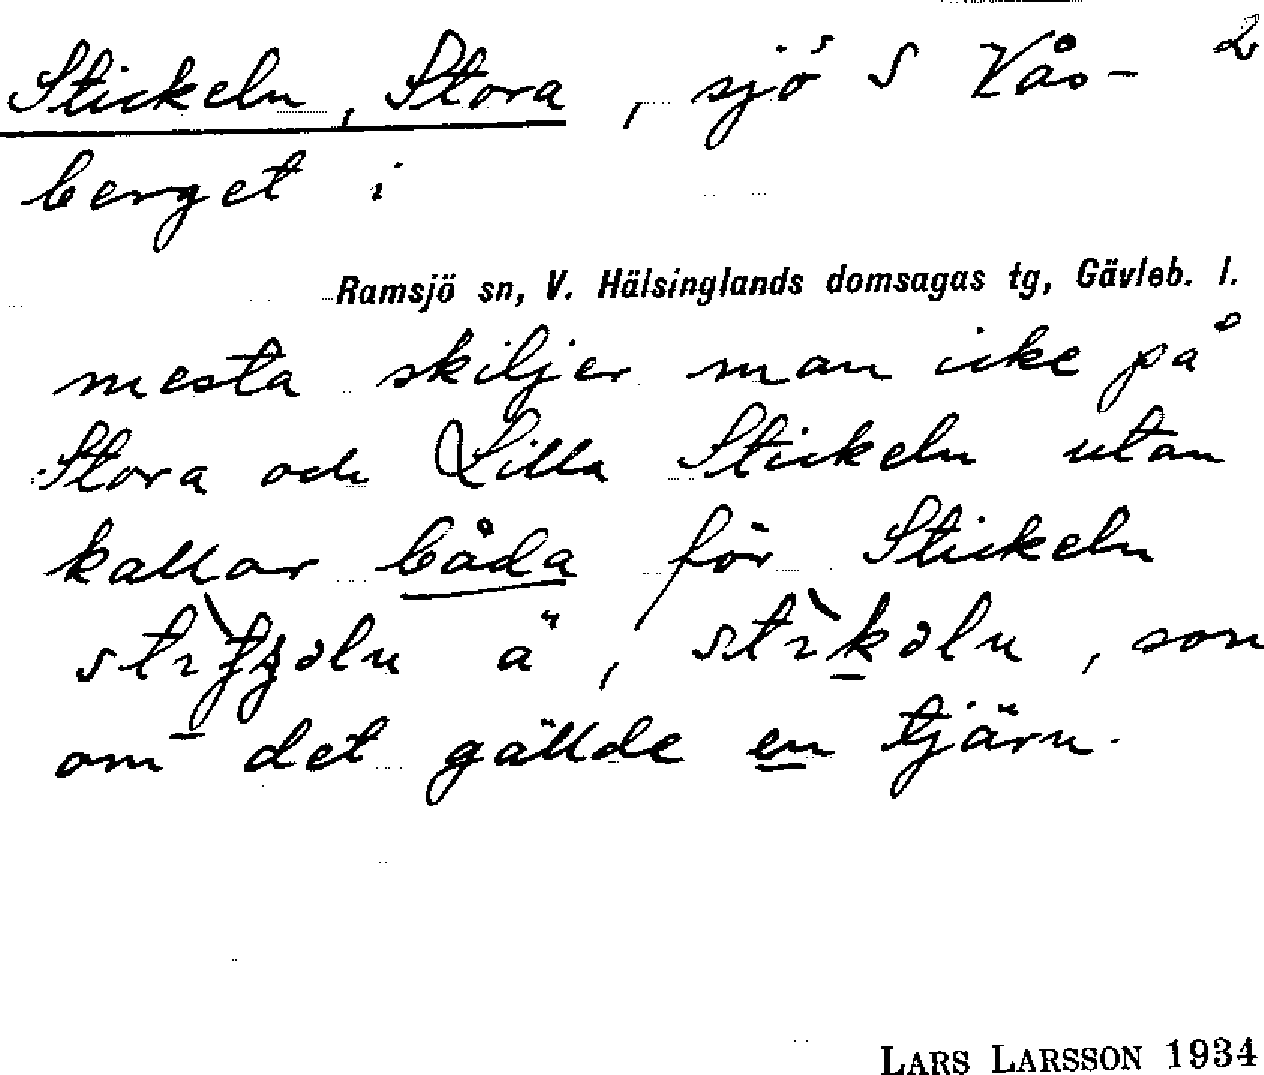 Stickeln, Stora, sjö S Vås- 2
berget i
Ramsjö sn, V. Hälsinglands domsagas tg, Gävleb. l.
mesta skiljer man icke på
Stora och Lilla Stickeln utan
kallar båda för Stickeln
ä, , som
om det gällde en tjärn.
LARS LARSSON 1934